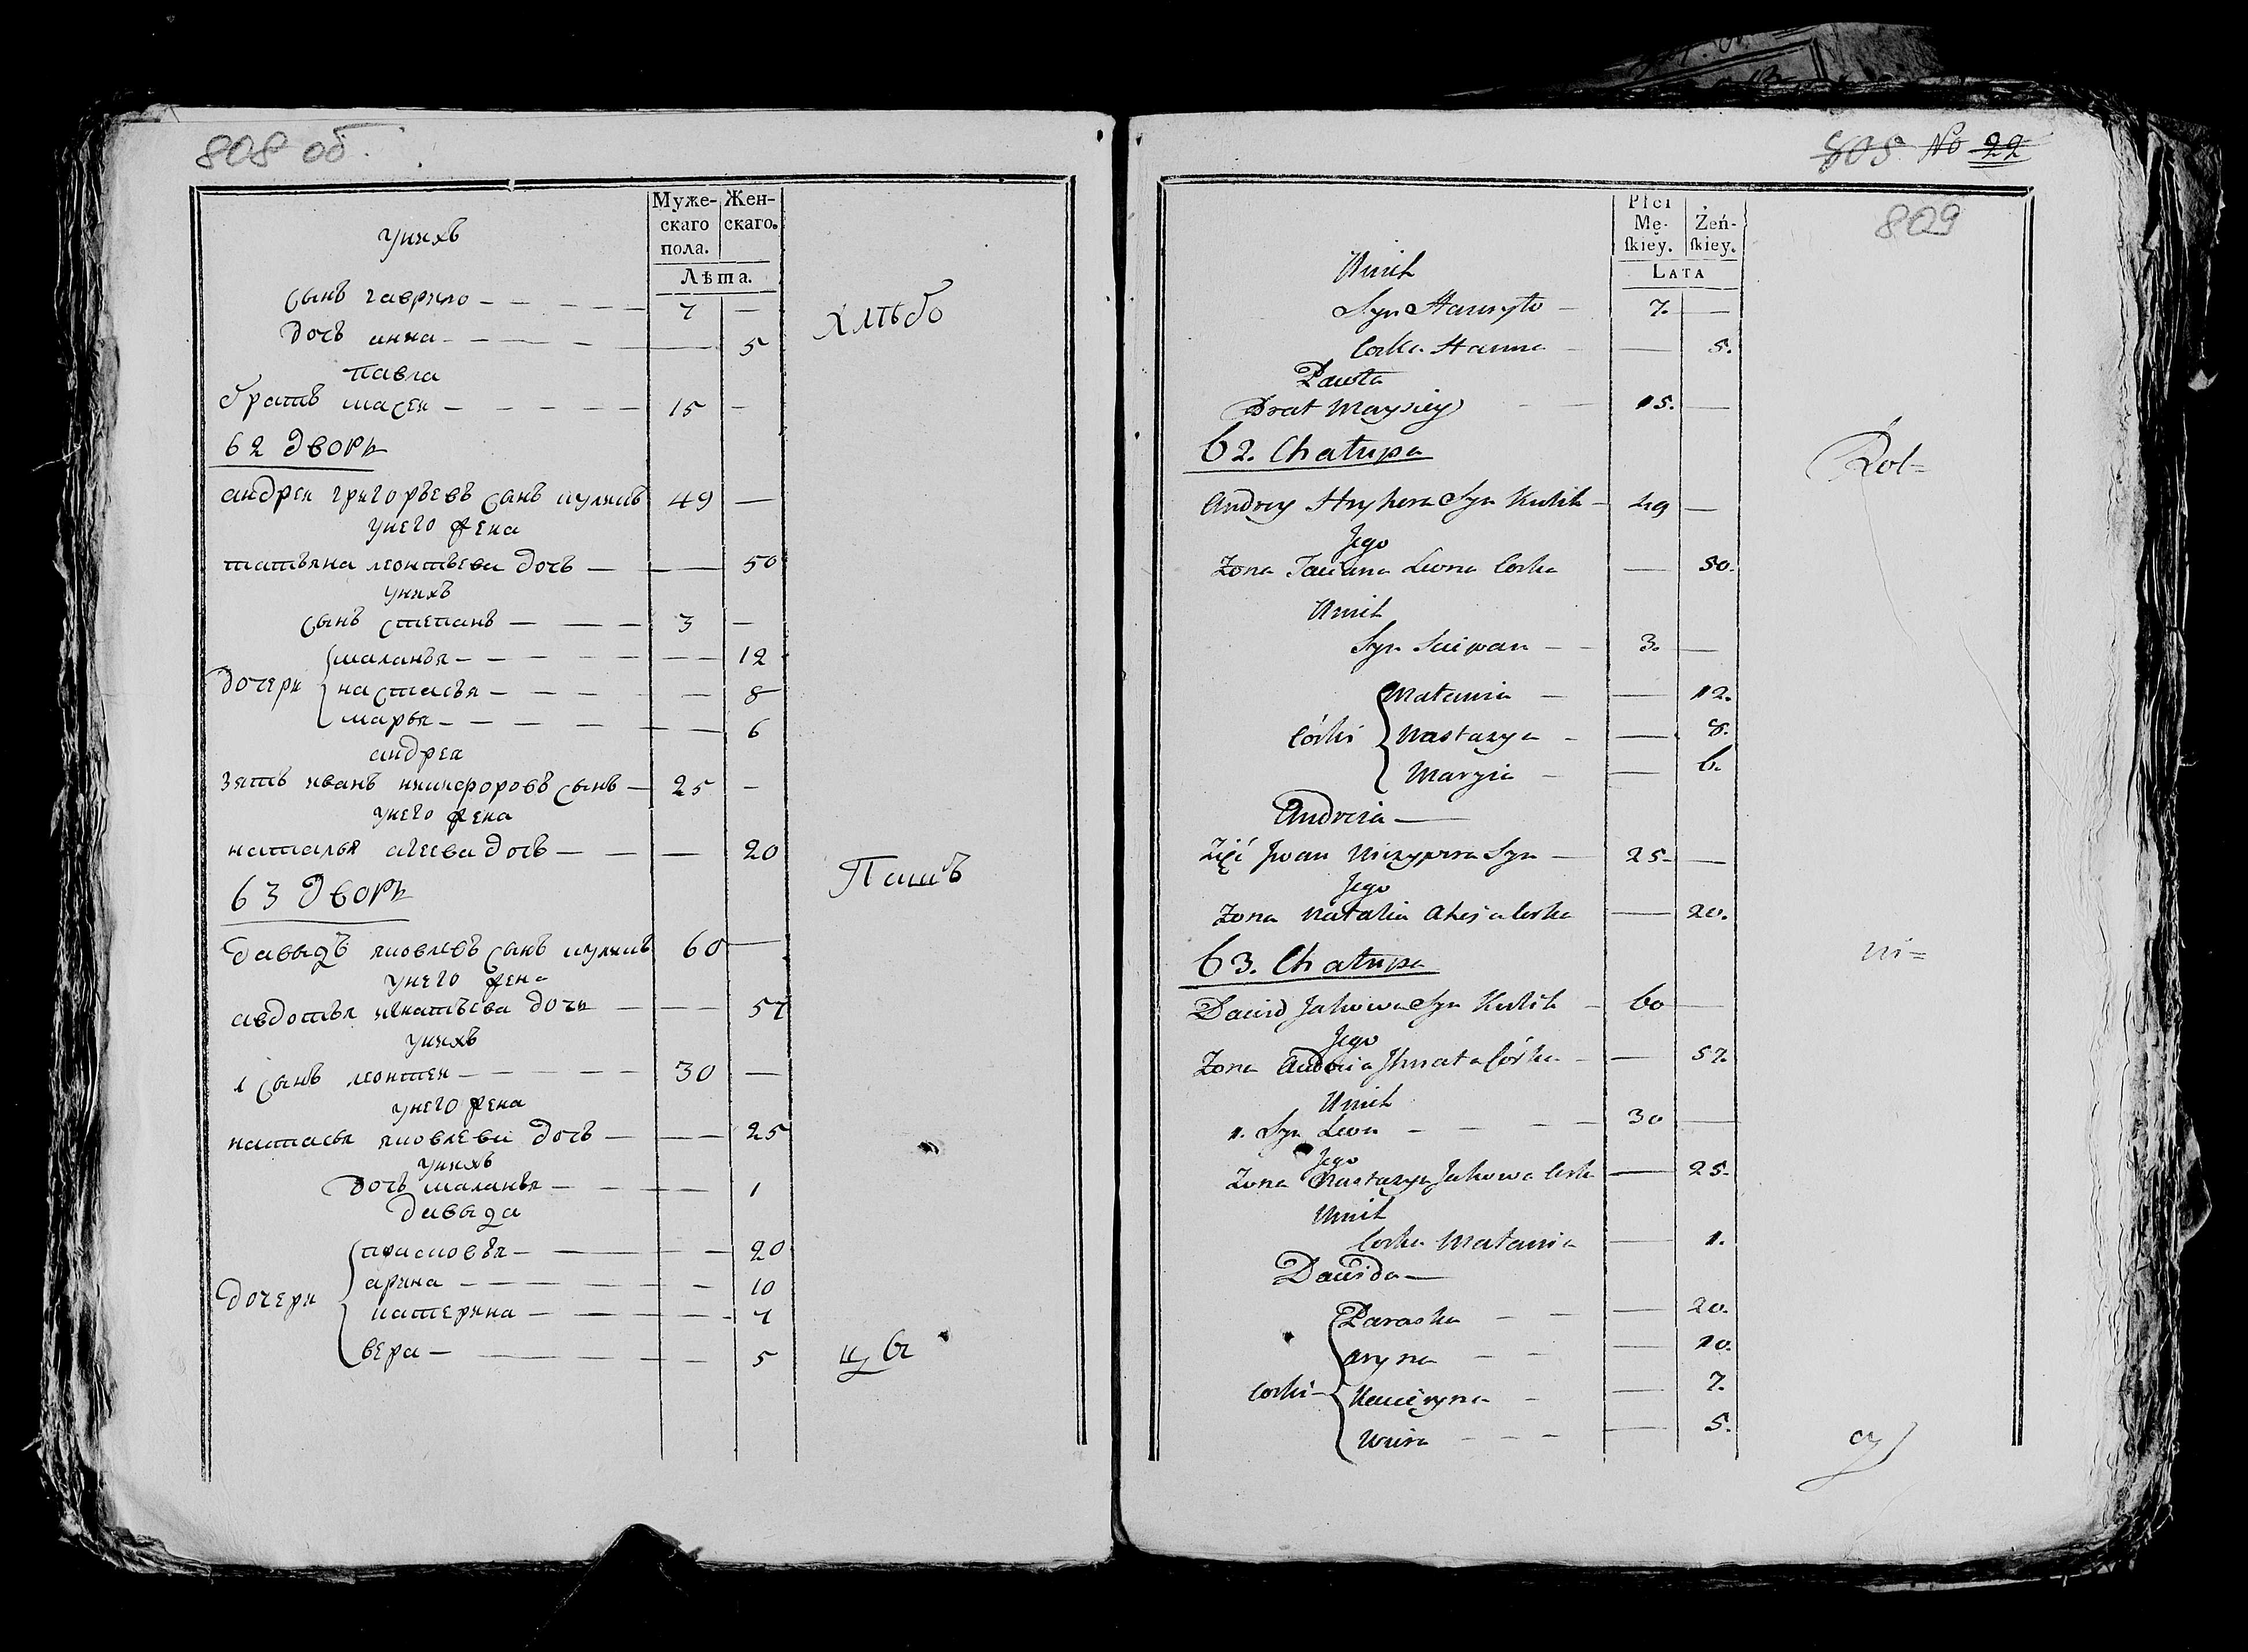 808 об.
Муже-
скаго
пола.
Жен-
скаго.
Лѣта.
унихъ
сынъ гаврило — 7 —
дочъ анна — — 5
Хлѣбо
павла
братъ мосеи — 15 —
62 дворъ
андреи григорьевъ сынъ куликъ 49 —
унего жена
татьяна леонтьева дочъ — — 50
унихъ
сынъ степанъ — 3 —
маланья — — 12
дочери настасья — — 8
марья — — 6
андрея
зять иванъ никифоровъ сынъ — 25 —
унего жена
наталья агеева дочъ — — 20
Пашъ
63 дворъ
давыдъ яковлевъ сынъ куликъ 60 —
унего жена
авдотья игнатьева дочь — — 57
унихъ
1 сынъ леонтеи — 30 —
унего жена
настасья яковлева дочъ — — 25
унихъ
дочъ маланья — — 1
давыда
прасковья — — 20
арина — — 10
дочери катерина — — 7
вера — — 5
805 No 22
809
Płci
Mę-
skiey.
Żeń-
skiey.
LATA
Unich
Syn Hawryło — 7. —
Corka Hanna — — 5.
Pawła
Brat Maysiey — 15. —
62. Chałupa
Rol=
Andrey Hryhora Syn Kulik — 49 —
Jego
Zona Taciana Leona Corka — 50.
Unich
Syn Sciepan — 3. —
Małania — — 12.
Córki Nastazya — — 8.
Maryia — — 6.
Andreia —
Zięć Jwan Niczypora Syn — 25. —
Jego
Zona Natalia Aheja Corka — 20.
63. Chałupa
ni=
Dawid Jakowa Syn Kulik — 60 —
Jego
Zona Audocia Jhnata Córka — — 57.
Unich
1. Syn Leon — 30 —
Jego
Zona Nastazya Jakowa Cork — 25.
Unich
Corka Małania — 1.
Dawida —
Paraska — — 20.
Aryna — — 10.
Corki Kacieryna — — 7.
Wiera — — 5.
cy